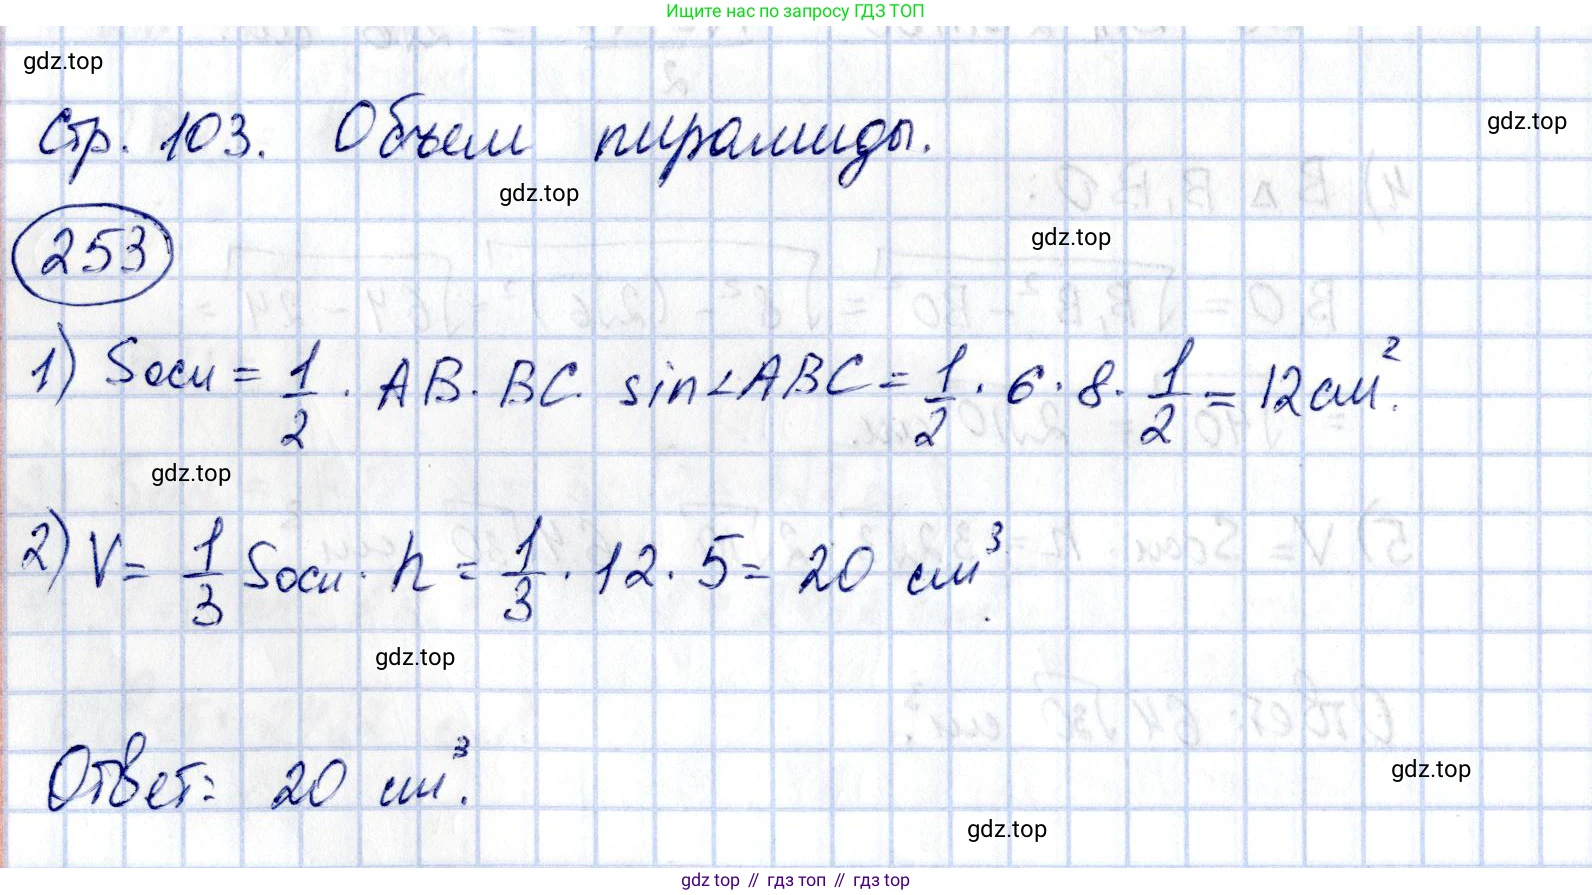 Ищите нас по запросу ГДЗ ТОП
gdz.top
Стр. 103. Объем пирамиды.
gdz.top
gdz.top
253
gdz.top
1) Sосн = 1/2 · AB · BC · sin∠ABC = 1/2 · 6 · 8 · 1/2 = 12 см².
gdz.top
2) V = 1/3 Sосн · h = 1/3 · 12 · 5 = 20 см³.
gdz.top
Ответ: 20 см³.
gdz.top
gdz.top
gdz top // гдз топ // гдз top